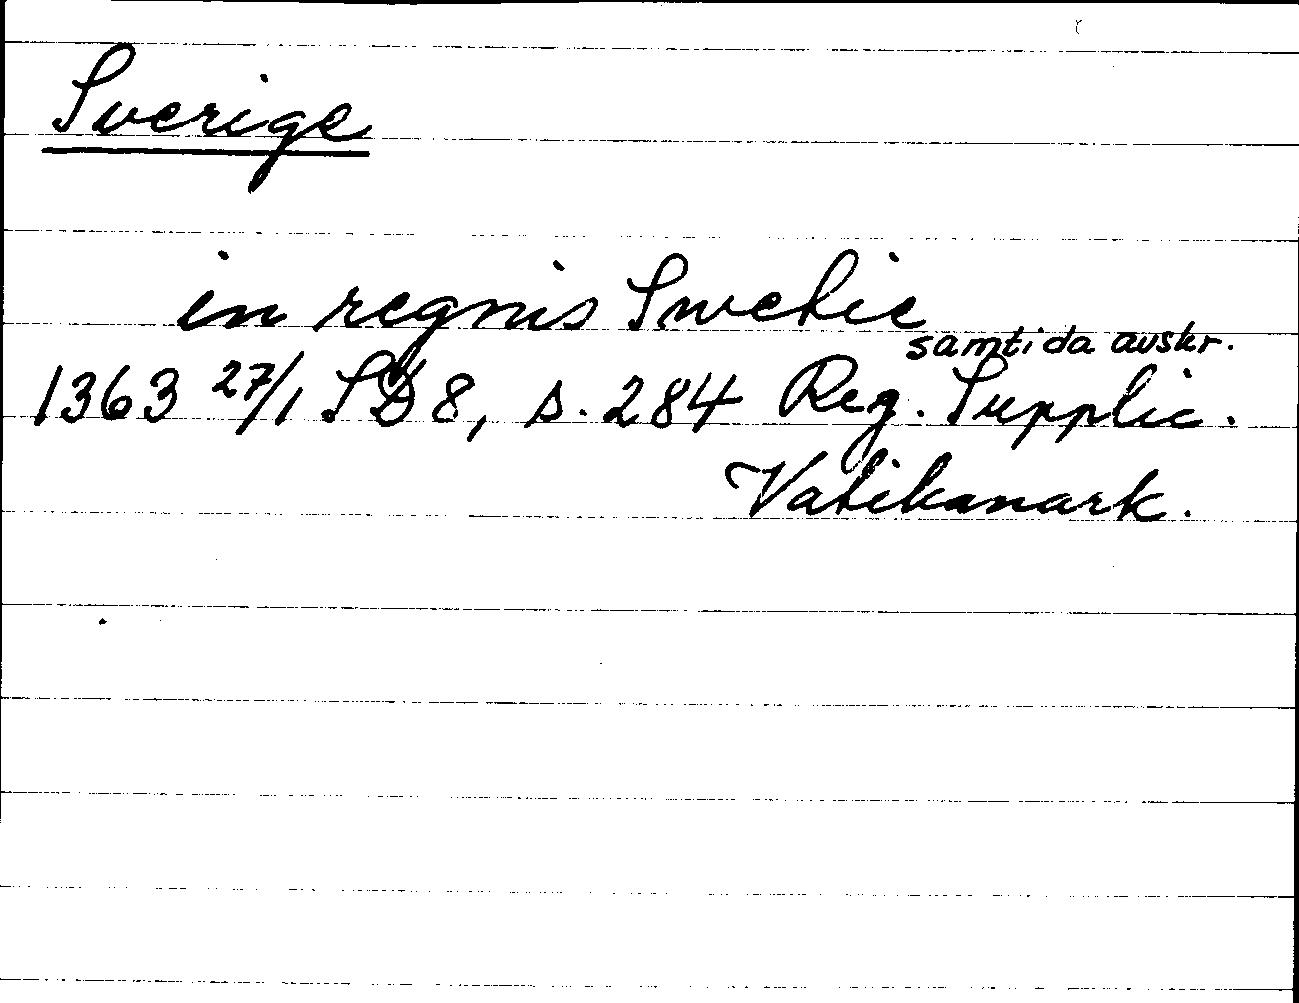 Sverige
in regnis Swetie
samtida avskr.
1363 27/1 SD 8, s. 284 Reg. Supplic.
Vatikanark.